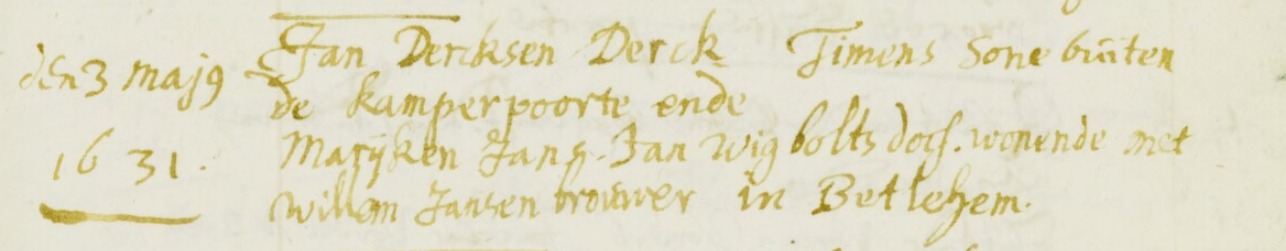 den 3 majo Jan Dercksen Derck Timens sone buiten
de kamperpoorte ende
1631. Marijken Jans. Jan wigbolts doch. wonende met
willem Jansen brouwer in Betlehem.